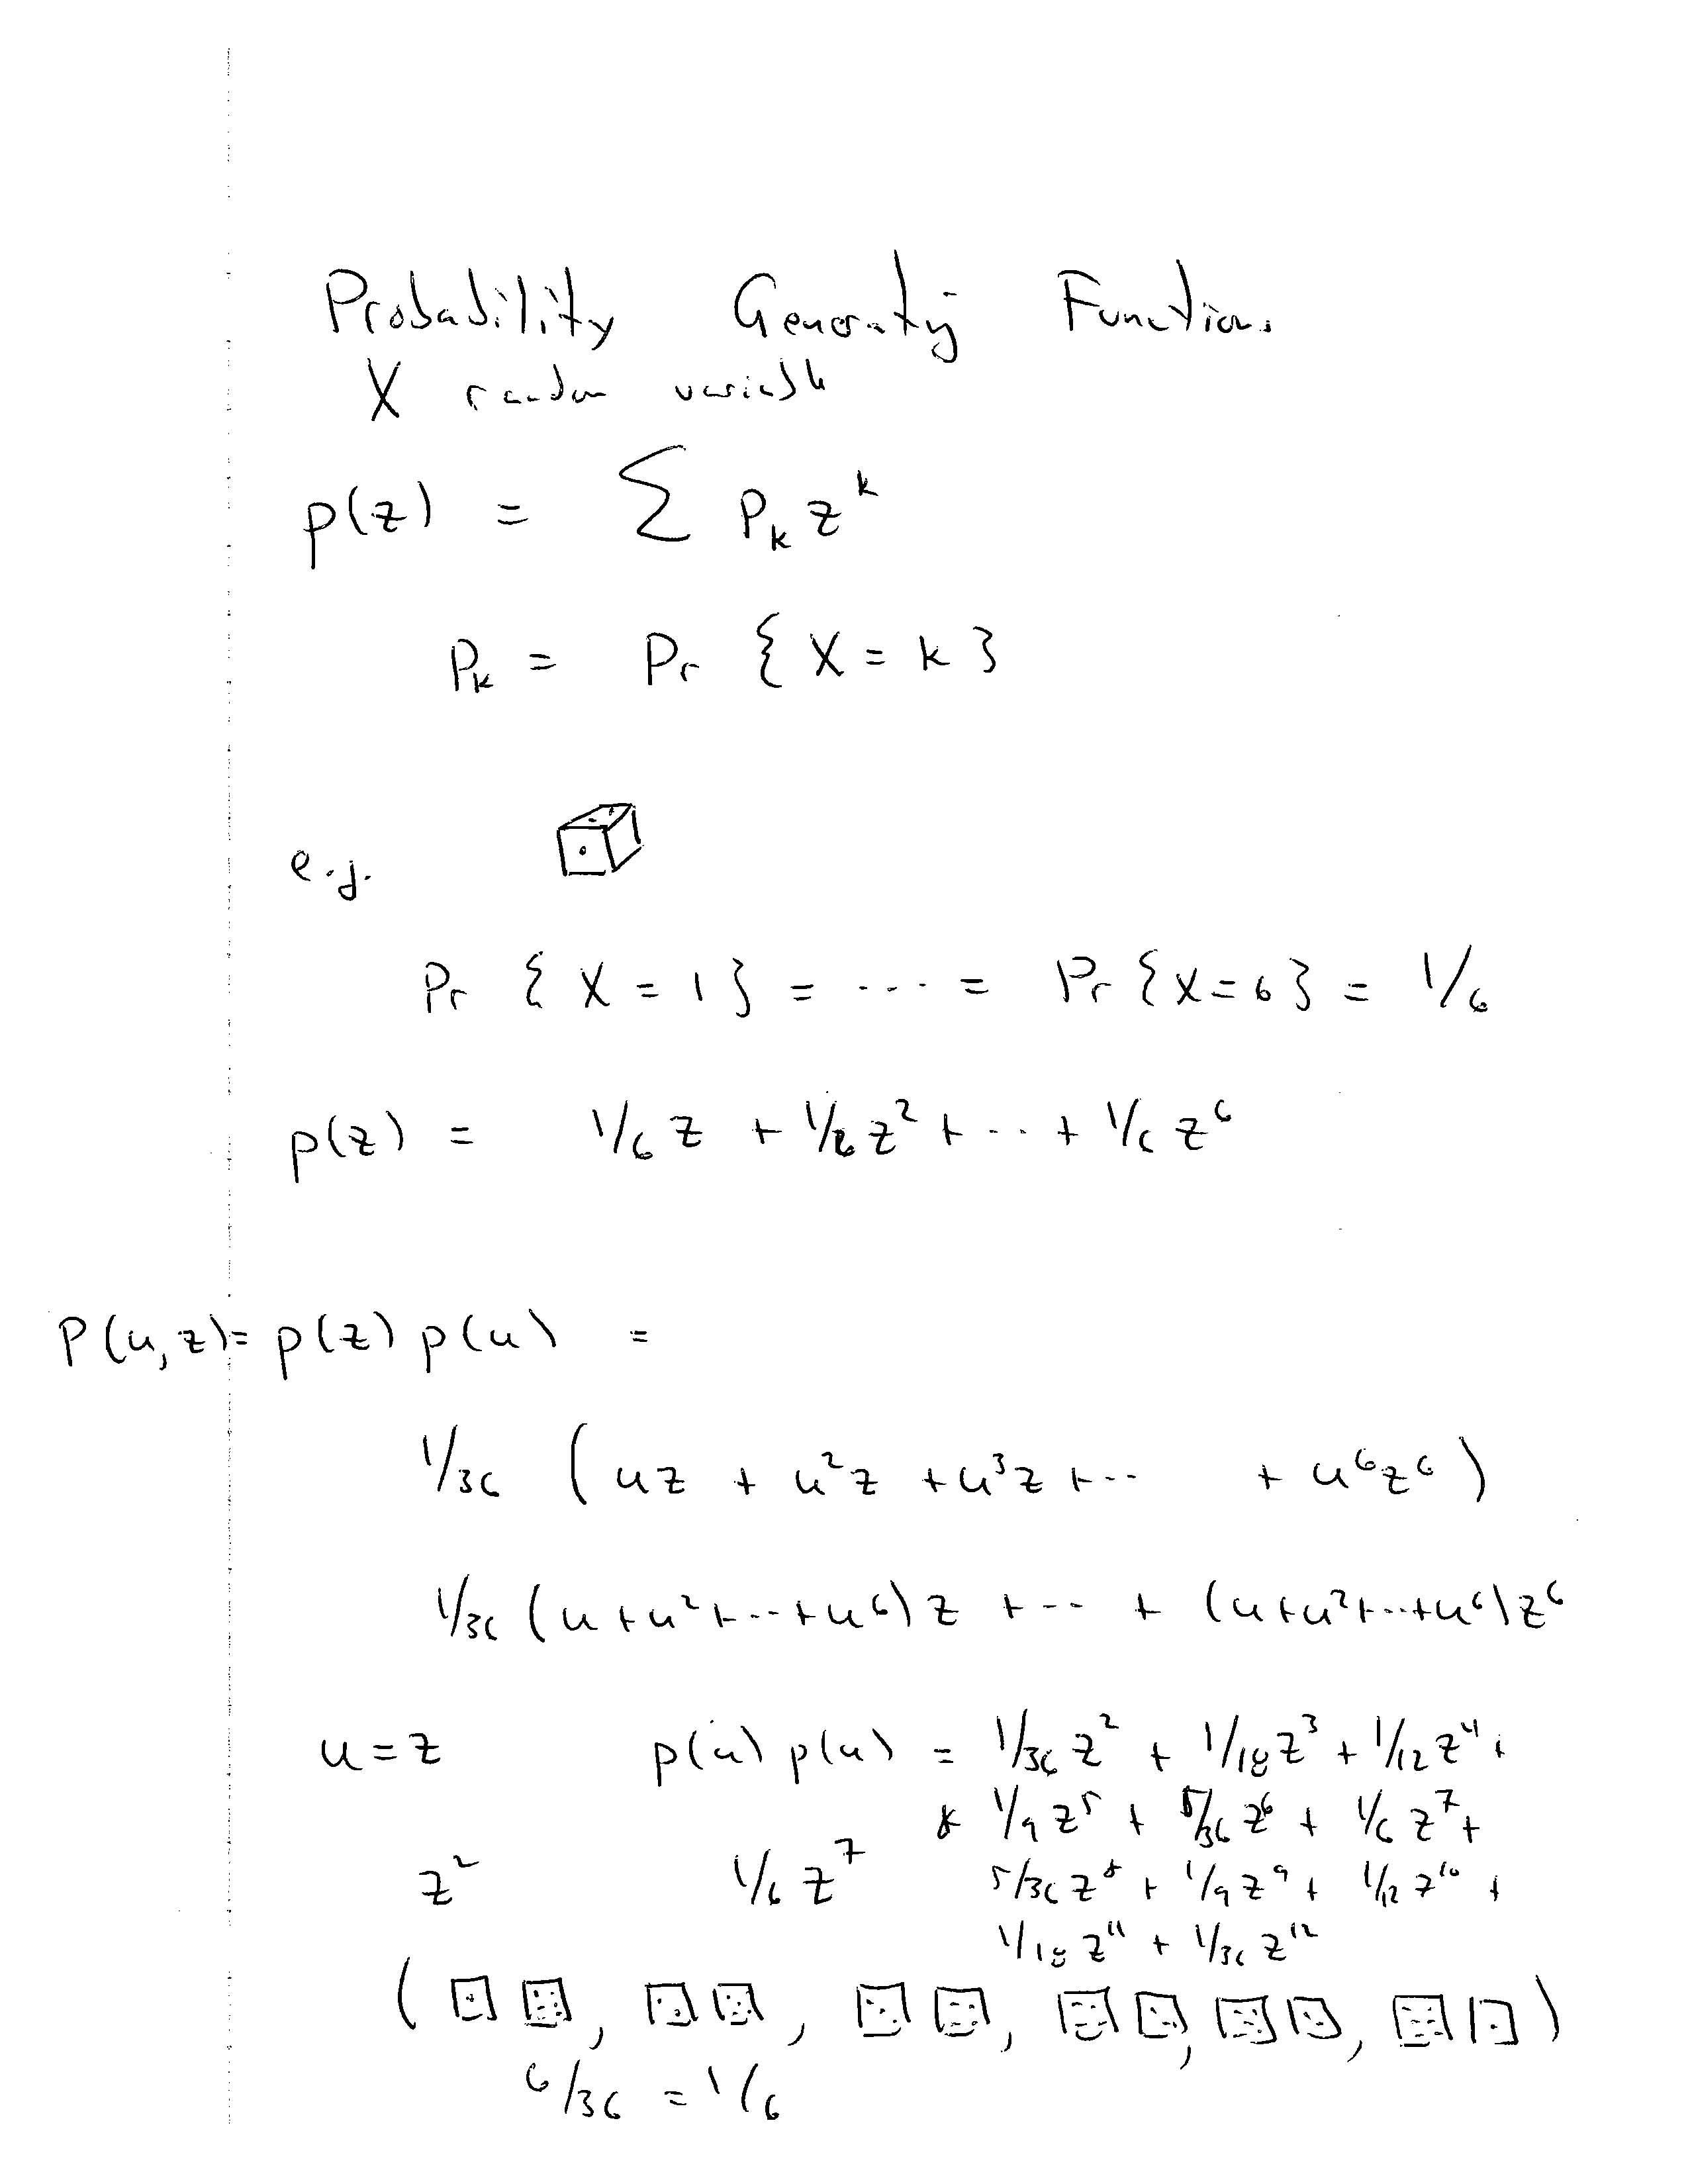 Probability Generating Functions
X random variable
p(z) = Σ p_k z^k
p_k = Pr { X = k }
e.g.
Pr { X = 1 } = ... = Pr { X = 6 } = 1/6
p(z) = 1/6 z + 1/6 z^2 + ... + 1/6 z^6
P(u,z) = p(z) p(u) =
1/36 ( uz + u^2z + u^3z + ... + u^6z^6 )
1/36 (u+u^2+...+u^6) z + ... + (u+u^2+...+u^6) z^6
u = z p(u) p(u) = 1/36 z^2 + 1/18 z^3 + 1/12 z^4 +
1/9 z^5 + 5/36 z^6 + 1/6 z^7 +
z^2 1/6 z^7 5/36 z^8 + 1/9 z^9 + 1/12 z^10 +
1/18 z^11 + 1/36 z^12
( , , , , , )
6/36 = 1/6